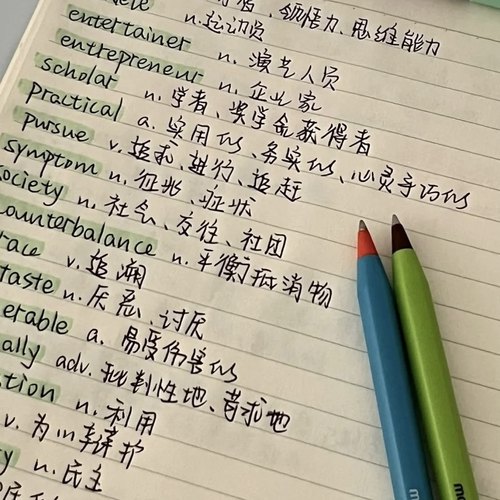 者、领悟力、思维能力
n.运动员
entertainer n. 演艺人员
entrepreneur n. 企业家
scholar n. 学者、奖学金获得者
practical a. 实用的、务实的、心灵手巧的
pursue v. 追求、进行、追赶
symptom n. 征兆、症状
society n. 社会、交往、社团
counterbalance n. 平衡抵消物
race v. 追溯
taste n. 厌恶、讨厌
erable a. 易受伤害的
ally adv. 批判性地、苛求地
tion n. 利用
v. 为…辩护
y n. 民主